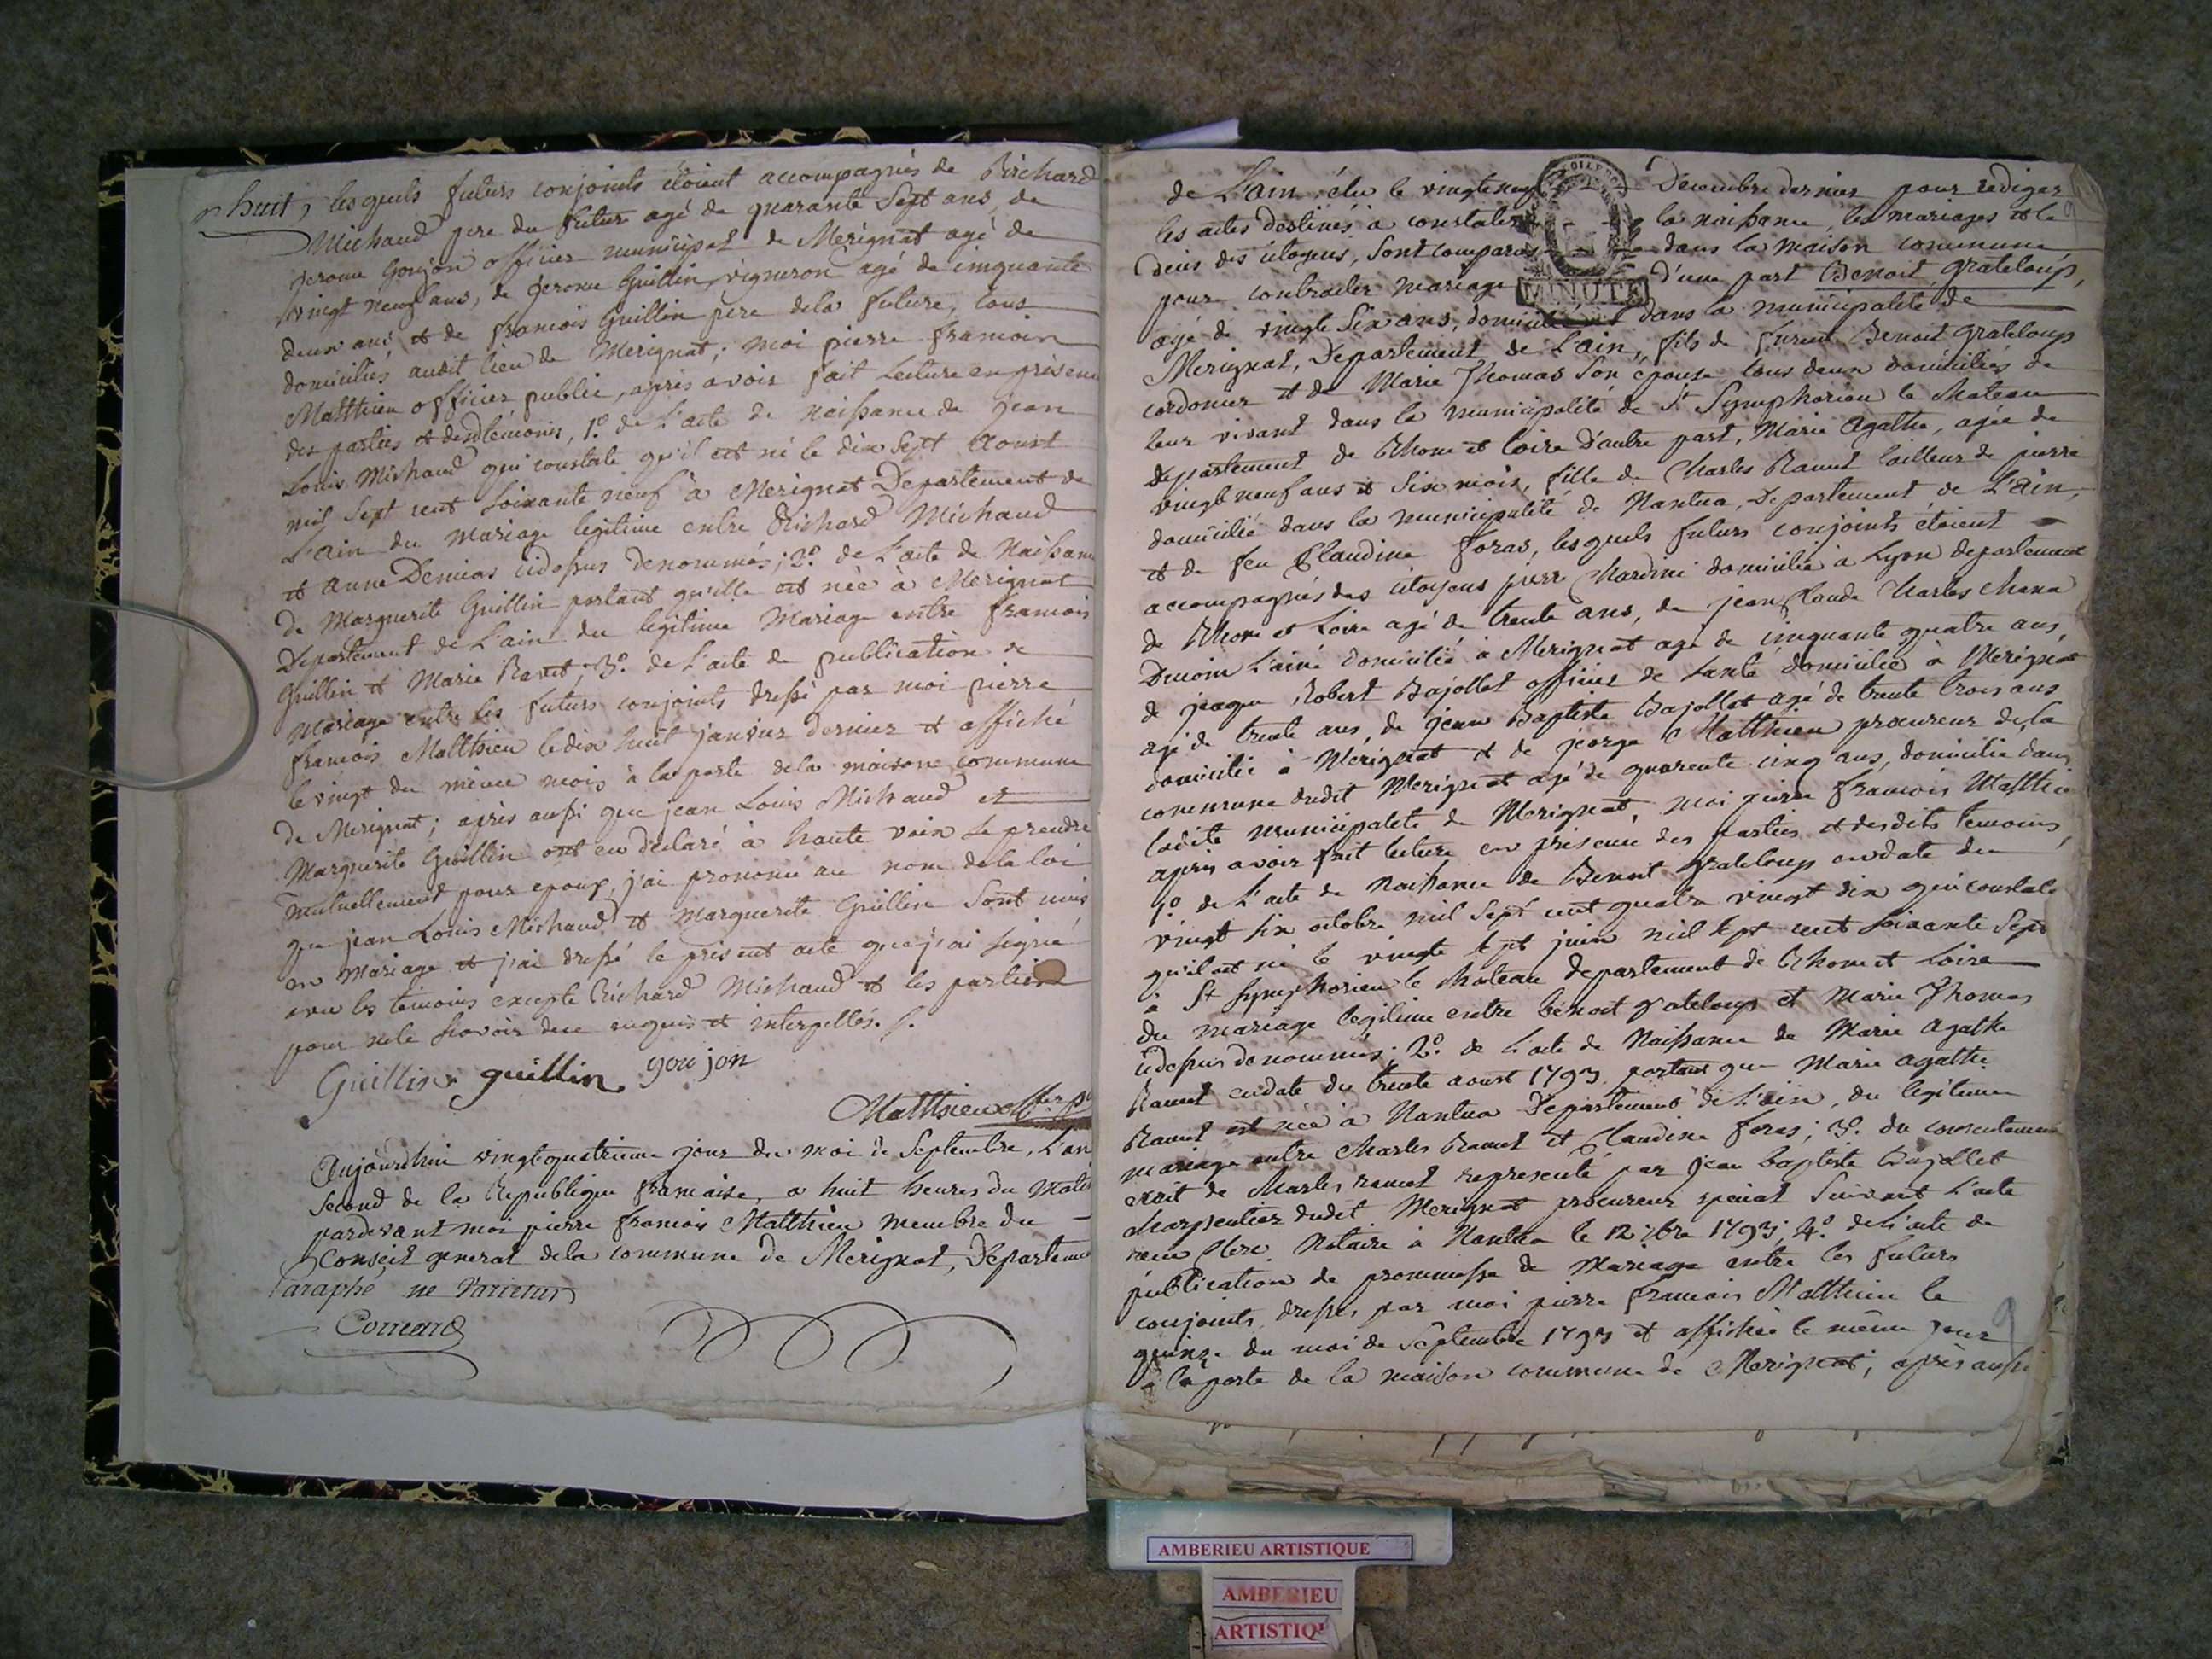 huit, lesquels futurs conjoints étoient accompagnés de Richard
Michaud pere du futur agé de quarante Sept ans, de
Jerome Goujon officier municipal de Merignat agé de
vingt neuf ans, de Jerome Guillin, vigneron agé de cinquante
deux ans et de francois Guillin pere dela future, tous
domiciliés audit lieu de Merignat; moi pierre francois
Matthieu officier public, après avoir fait Lecture en présence
des parties et desd. témoins, 1º. de L'acte de naissance de jean
Louis Michaud qui constate qu'il est né le dix Sept Aoust
mil Sept cent Soixante neuf à Merignat Departement de
L'ain du Mariage legitime entre Richard Michaud
et anne Demias cidessus denommés; 2º. de L'acte de Naissance
de Marguerite Guillin portant qu'elle est née à Merignat
Departement de L'ain du legitime Mariage entre francois
Guillin et Marie Ravet; 3º. de L'acte de publication de
Mariage entre les futurs conjoints dressé par moi pierre
francois Matthieu le dix huit janvier dernier et affiché
le vingt du même mois à la porte dela maison commune
de Merignat; après aussi que jean Louis Michaud et
Marguerite Guillin ont eu déclaré à haute voix se prendre
mutuellement pour epoux, j'ai prononcé au nom dela loi
que jean Louis Michaud et Marguerite Guillin Sont unis
en Mariage et j'ai dressé le present acte que j'ai signé
avec les témoins excepté Richard Michaud et les parties
pour ne le scavoir de ce enquis et interpellés. /.
Guillin guillin goujon
Matthieu offer. p
Aujourdhui vingtquatrieme jour du moi de Septembre, L'an
Second de la Republique francaise, a huit heures du Matin
pardevant moi pierre francois Matthieu membre du
Conseil general dela commune de Merignat, Departement
Paraphé ne Varietur
Cornard
de L'ain, élu le vingt neuf Decembre dernier pour rediger
les actes destinés à constater la naissance, les mariages et le
decés des citoyens, Sont comparus dans la Maison commune
pour contracter mariage d'une part Benoit grateloup,
MINUTE
agé de vingt Six ans, domicilié dans la municipalité de
Merignat, Departement de L'ain, fils de furent Benoit grateloup
cordonier et de Marie Thomas Son epouse tous deux domiciliés de
leur vivant dans la municipalité de St Symphorien le Chateau
Departement de Rhone et Loire D'autre part, Marie Agathe, agée de
vingt neuf ans et Six mois, fille de Charles Ramet tailleur de pierre
domicilié dans la municipalité de Nantua, Departement de L'ain,
et de feu Claudine foras, lesquels futurs conjoints étoient
accompagnés des citoyens pierre Chardini domicilié à Lyon departement
de Rhone et Loire agé de trente ans, de jean Claude Charles Chana
L'ainé domicilié à Merignat agé de cinquante quatre ans,
de jacque Robert Bajollet officier de Santé domicilié à Merignat
agé de trente ans, de jean Baptiste Bajollet agé de trente trois ans
domicilié à Merignat et de jeorge Matthieu procureur dela
commune dudit Merignat agé de quarente cinq ans, domicilié dans
ladite municipalité de Merignat, moi pierre francois Matthieu
apres avoir fait lecture en présence des parties et desdits temoins,
1º. de L'acte de Naissance de Benoit grateloup en date du
vingt six octobre mil Sept cent quatre vingt dix qui constate
qu'il est né le vingt sept juin mil sept cent Soixante Sept
à St Symphorien le chateau departement de Rhone et Loire
du mariage legitime entre bénoit grateloup et Marie Thomas
cidessus denommés; 2º. de L'acte de Naissance de Marie agathe
Ramet endate du trente aoust 1793 portant que Marie agathe
Ramet est née à Nantua Departement de L'ain, du legitime
mariage entre Charles Ramet et Claudine foras; 3º. du consentement
ecrit de Charles ramet representé par jean baptiste Bajollet
charpentier dudit Merignat procureur special Suivant L'acte
Notaire à Nantua le 12 7bre 1793; 4º. de L'acte de
publication de prommesse de Mariage entre les futurs
conjoints, dressé, par moi pierre francois Matthieu le
quinze du moi de Septembre 1793 et affichée le même jour
à la porte de la maison commune de Merignat; après aussi
9
AMBERIEU ARTISTIQUE
AMBERIEU
ARTISTIQ